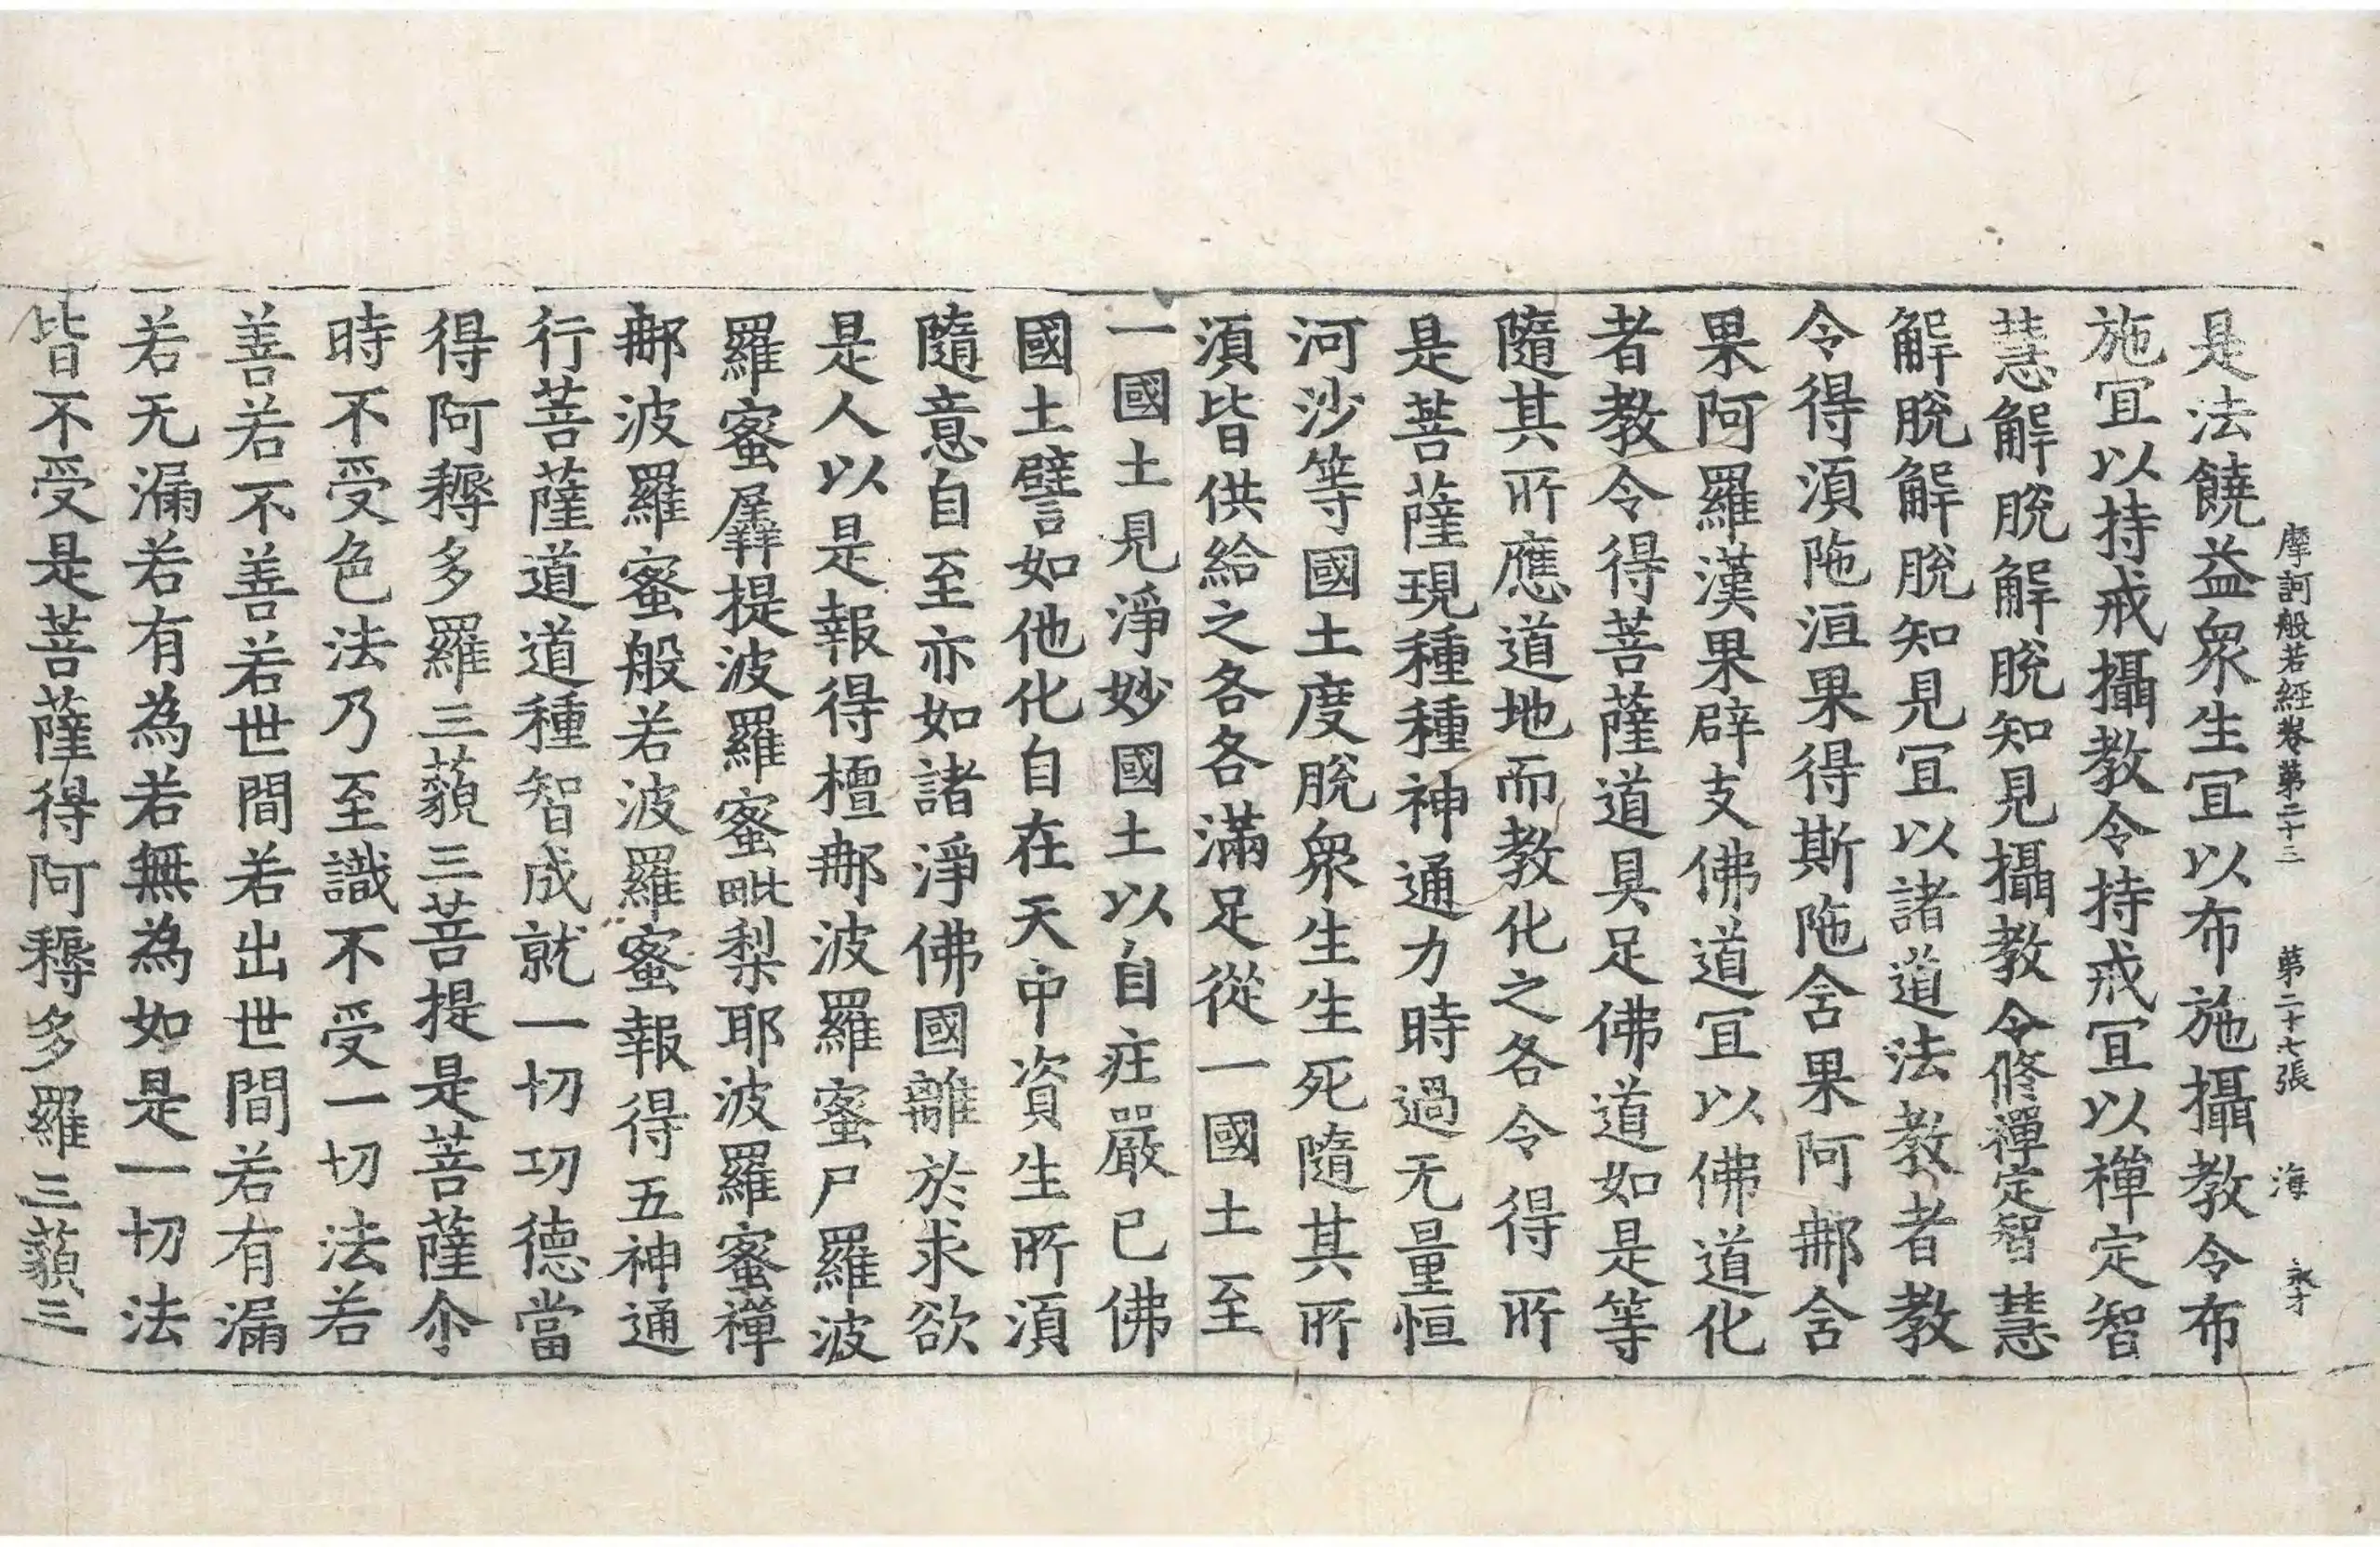 摩訶般若經卷第二十三 第二十七張 海 永才
是法饒益衆生冝以布施攝教令布
施冝以持戒攝教令持戒冝以禪定智
慧解脫解脫知見攝教令修禪定智慧
解脫解脫知見冝以諸道法教者教
令得湏陁洹果得斯陁含果阿𨚗含
果阿羅漢果辟支佛道冝以佛道化
者教令得菩薩道具足佛道如是等
隨其所應道地而教化之各令得所
是菩薩現種種神通力時過无量恒
河沙等國土度脫衆生生死隨其所
湏皆供給之各各滿足從一國土至
一國土見淨妙國土以自疰嚴已佛
國土譬如他化自在天中資生所湏
隨意自至亦如諸淨佛國離於求欲
是人以是報得檀𨚗波羅蜜尸羅波
羅蜜羼提波羅蜜毗梨耶波羅蜜禪
𨚗波羅蜜般若波羅蜜報得五神通
行菩薩道道種智成就一切功德當
得阿耨多羅三藐三菩提是菩薩尒
時不受色法乃至識不受一切法若
善若不善若世間若出世間若有漏
若无漏若有為若無為如是一切法
皆不受是菩薩得阿耨多羅三藐三